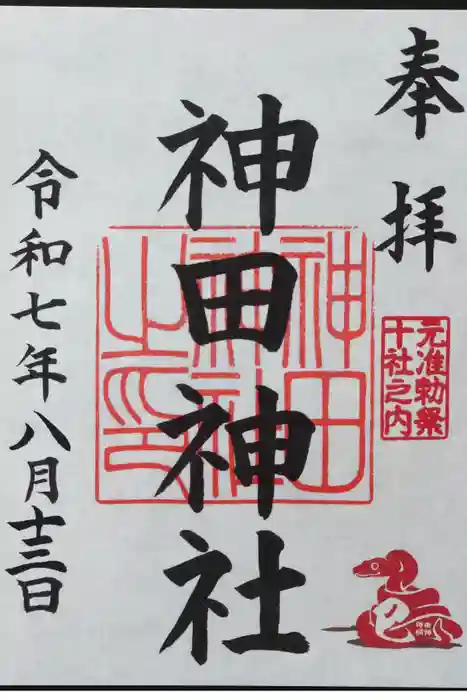 奉拝
元准勅祭
十社之内
神田神社
神田
神社
之印
令和七年八月十三日